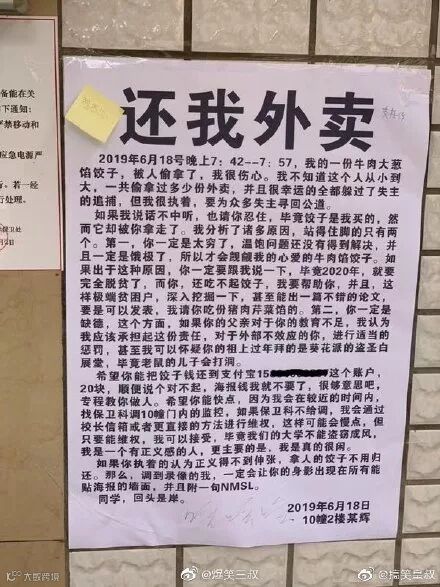 备能在关
下通知:
严禁移动和
应急电源严
若一经
行处理。
保卫处
还我外卖
2019年6月18号晚上7:42--7:57,我的一份牛肉大葱
馅饺子,被人偷拿了,我很伤心。我不知道这个人从小到
大,一共偷拿过多少份外卖,并且很幸运的全都躲过了失主
的追捕,但我很执着,要为众多失主寻回公道。
如果我说话不中听,也请你忍住,毕竟饺子是我买的,然
而它却被你拿走了。我分析了诸多原因,站得住脚的只有两
个。第一,你一定是太穷了,温饱问题还没有得到解决,并
且一定是饿极了,所以才会觊觎我的心爱的牛肉馅饺子。如
果出于这种原因,你一定要跟我说一下,毕竟2020年,就要
完全脱贫了,而你,还吃不起饺子,我要帮助你,并且,这
样极端贫困户,深入挖掘一下,甚至能出一篇不错的论文,
要是可以发表,我请你吃份猪肉芹菜馅的。第二,你一定是
缺德,这个方面,如果你的父亲对于你的教育不足,我认为
我应该承担起这份责任,对于外部不效应的你,进行适当的
惩罚,甚至我可以怀疑你的祖上过年拜的葵花派的盗圣白
展堂,毕竟老鼠的儿子会打洞。
希望你能把饺子钱还到支付宝15 这个账户,
20块,顺便说个对不起,海报钱我就不要了,很够意思吧,
专程教你做人。希望你能快点,因为我会在较近的时间内,
找保卫科调10幢门内的监控,如果保卫科不给调,我会通过
校长信箱或者更直接的方法进行维权,这样可能会慢点,但
只要能维权,我可以接受,毕竟我们的大学不能盗窃成风,
我是一个有正义感的人,更主要的是,我是真的很闲。
如果你执着的认为正义得不到伸张,拿人的饺子不用归
还。那么,调到录像的我,一定会让你的身影出现在所有能
贴海报的墙面,并且附一句NMSL。
同学,回头是岸。
2019年6月18日
10幢2楼某辉
大皖跨境
@爆笑三叔
@搞笑皇叔